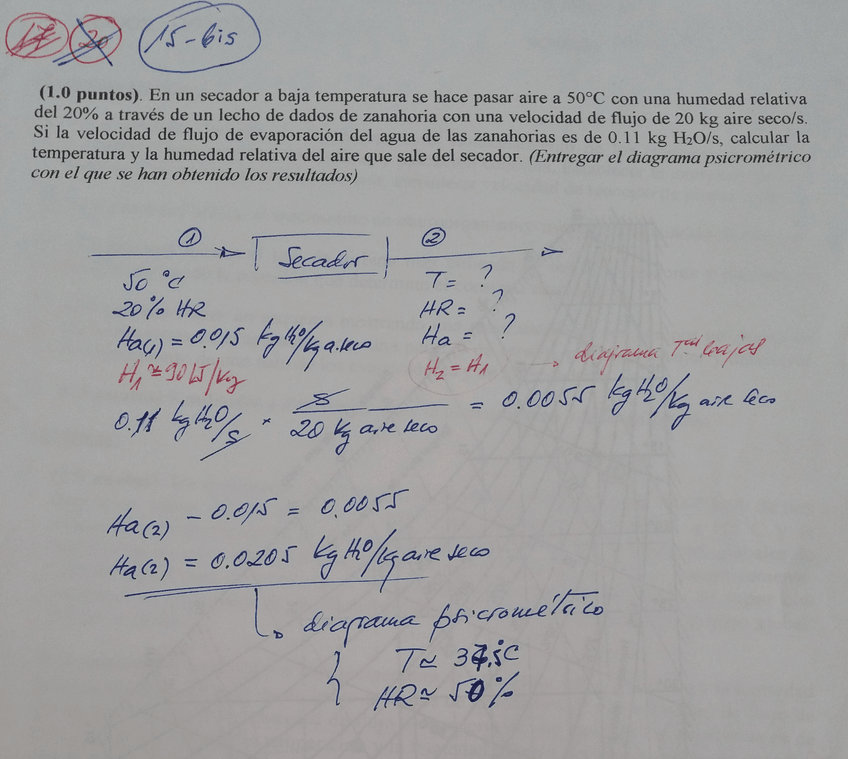 17 20 15-bis
(1.0 puntos). En un secador a baja temperatura se hace pasar aire a 50°C con una humedad relativa
del 20% a través de un lecho de dados de zanahoria con una velocidad de flujo de 20 kg aire seco/s.
Si la velocidad de flujo de evaporación del agua de las zanahorias es de 0.11 kg H₂O/s, calcular la
temperatura y la humedad relativa del aire que sale del secador. (Entregar el diagrama psicrométrico
con el que se han obtenido los resultados)
① Secador ②
50 °C T= ?
20% HR HR= ?
Ha(1) = 0.015 kg H₂O/kg a.seco Ha = ?
H₁ ≈ 90 kJ/kg H₂ = H₁ → diagrama Tᵃˢ bajas
0.11 kg H₂O/s * s/20 kg aire seco = 0.0055 kg H₂O/kg aire seco
Ha(2) - 0.015 = 0.0055
Ha(2) = 0.0205 kg H₂O/kg aire seco
diagrama psicrométrico
T ≃ 37.5°C
HR ≃ 50%